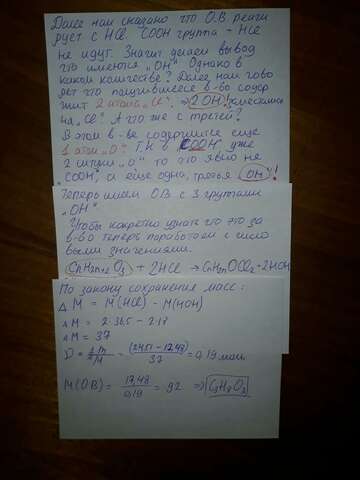 Далее нам сказано что О.В реаги
рует с HCl. COOH группа - HCl
не идут. Значит делаем вывод
что имеются „OH“. Однако в
каком количестве? Далее, нам гово
рят что получившееся в-во содер
жит 2 атома „Cl“. ⇒ 2 OH!
на „Cl“. А что же с третьей?
В этом в-ве содержится еще
1 атом „O“. Т.к в COOH, уже
2 штуки „O“ то это явно не
„COOH, а еще одна, третья „OH“!
Теперь имеем О.В с 3 группами
„OH“
Чтобы конкретно узнать что это за
в-во теперь поработаем с число
выми значениями.
CnH2n+2O3 + 2HCl → CnH2nOCl2 + 2HOH
По закону сохранения масс:
Δ M = M(HCl) - M(HOH)
Δ M = 2·36,5 - 2·18
Δ M = 37
= 0,19 моль
M(OB) = 17,48 / 0,19 = 92 ⇒ C3H8O3